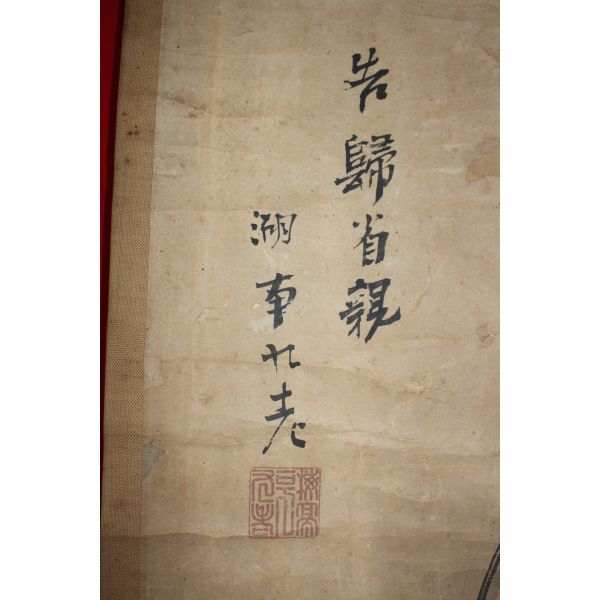 告歸省親
湖南九老